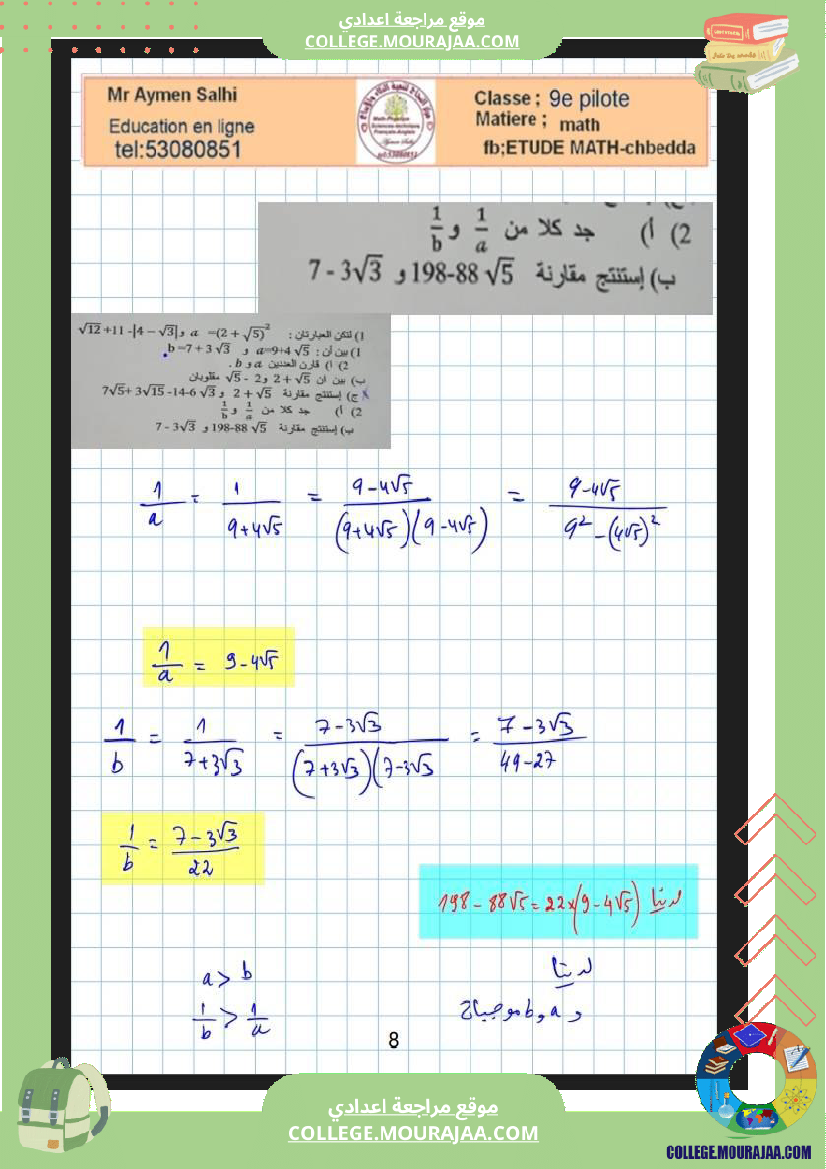 موقع مراجعة اعدادي
COLLEGE.MOURAJAA.COM
Mr Aymen Salhi
Education en ligne
tel:53080851
Classe ; 9e pilote
Matiere ; math
fb;ETUDE MATH-chbedda
2) أ) جد كلا من 1/a و 1/b
ب) إستنتج مقارنة 198-88√5 و 7 - 3√3
1) لتكن العبارتان : a =(2 + √5)² و √12 +11 -|4 - √3|
1) بين أن : a=9+4√5 و b =7 + 3√3
2) أ) قارن العددين a و b .
ب) بين ان 2 + √5 و √5 - 2 مقلوبان
ج) إستنتج مقارنة 2 + √5 و 7√5+ 3√15 -14-6√3
2) أ) جد كلا من 1/a و 1/b
ب) إستنتج مقارنة 198-88√5 و 7 - 3√3
1/a = 1/(9+4√5) = (9-4√5)/((9+4√5)(9-4√5)) = (9-4√5)/(9² -(4√5)²)
1/a = 9-4√5
1/b = 1/(7+3√3) = (7-3√3)/((7+3√3)(7-3√3) = (7-3√3)/(49-27)
1/b = (7-3√3)/22
لدينا 198-88√5=22×(9-4√5)
لدينا a > b
و a و b موجبان 1/b > 1/a
8
موقع مراجعة اعدادي
COLLEGE.MOURAJAA.COM
COLLEGE.MOURAJAA.COM